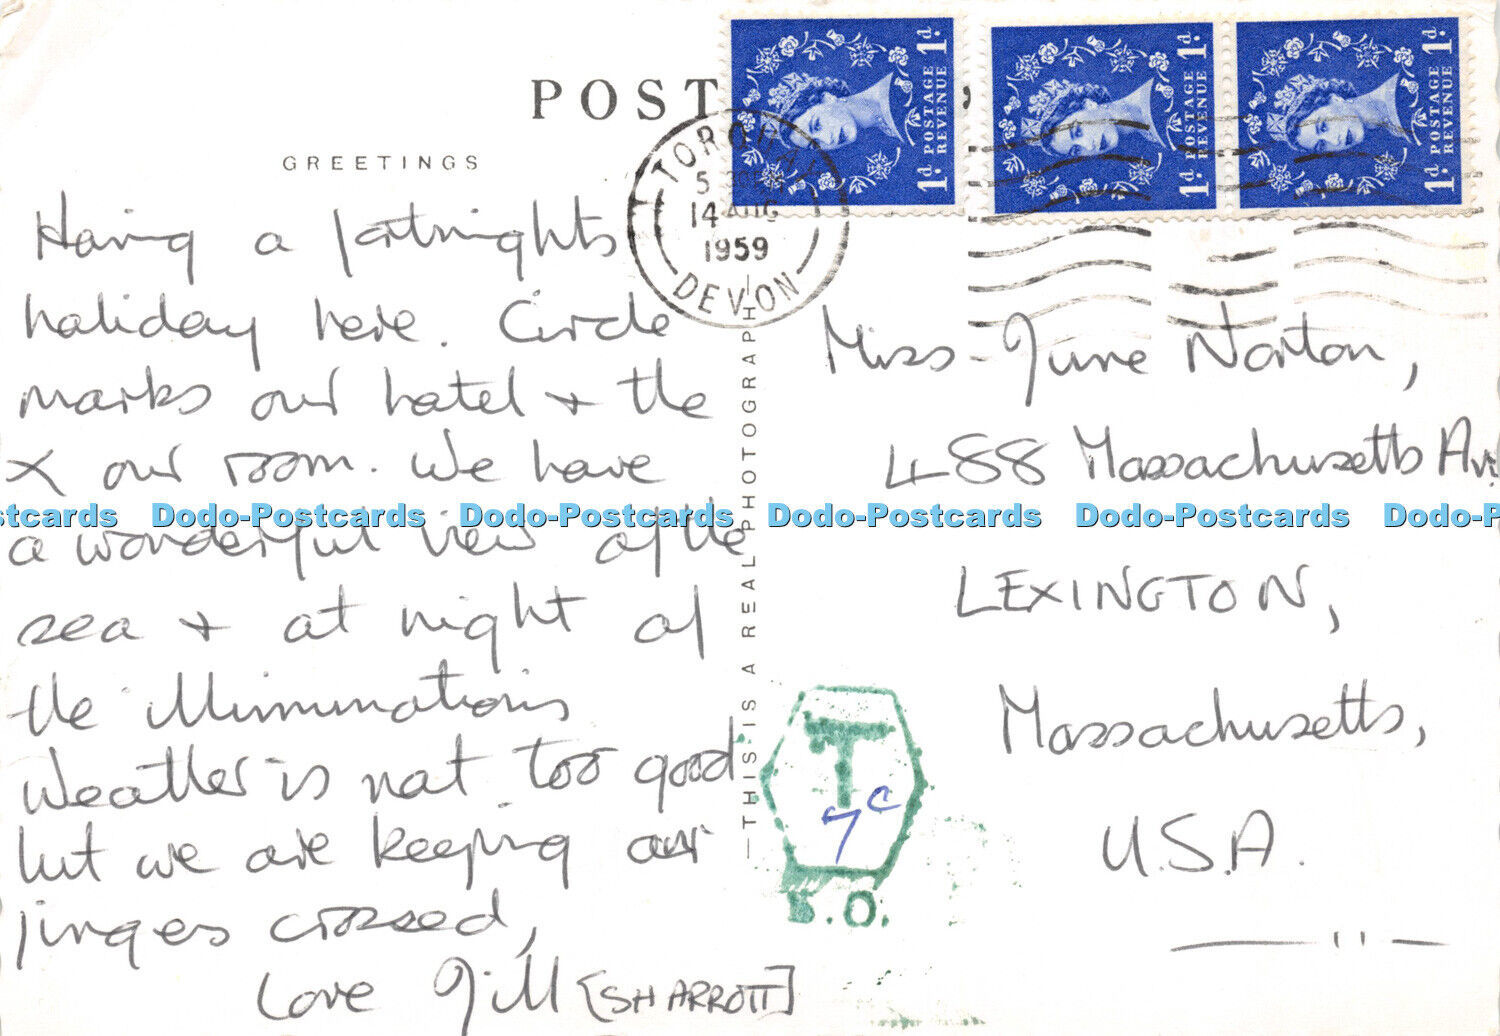 POST
GREETINGS
Having a fortnights
holiday here. Circle
marks our hotel + the
X our room. We have
a wonderful view of the
sea + at night of
the illuminations
Weather is not too good
but we are keeping our
fingers crossed,
Love Gill [SHARROTT]
TORQUAY
5
14 AUG
1959
DEVON
1d POSTAGE REVENUE 1d
1d POSTAGE REVENUE 1d
1d POSTAGE REVENUE 1d
—THIS IS A REAL PHOTOGRAPH—
Miss June Norton,
488 Massachusetts Ave
LEXINGTON,
Massachusetts,
U.S.A.
T
7c
B.O.
Dodo-Postcards Dodo-Postcards Dodo-Postcards Dodo-Postcards